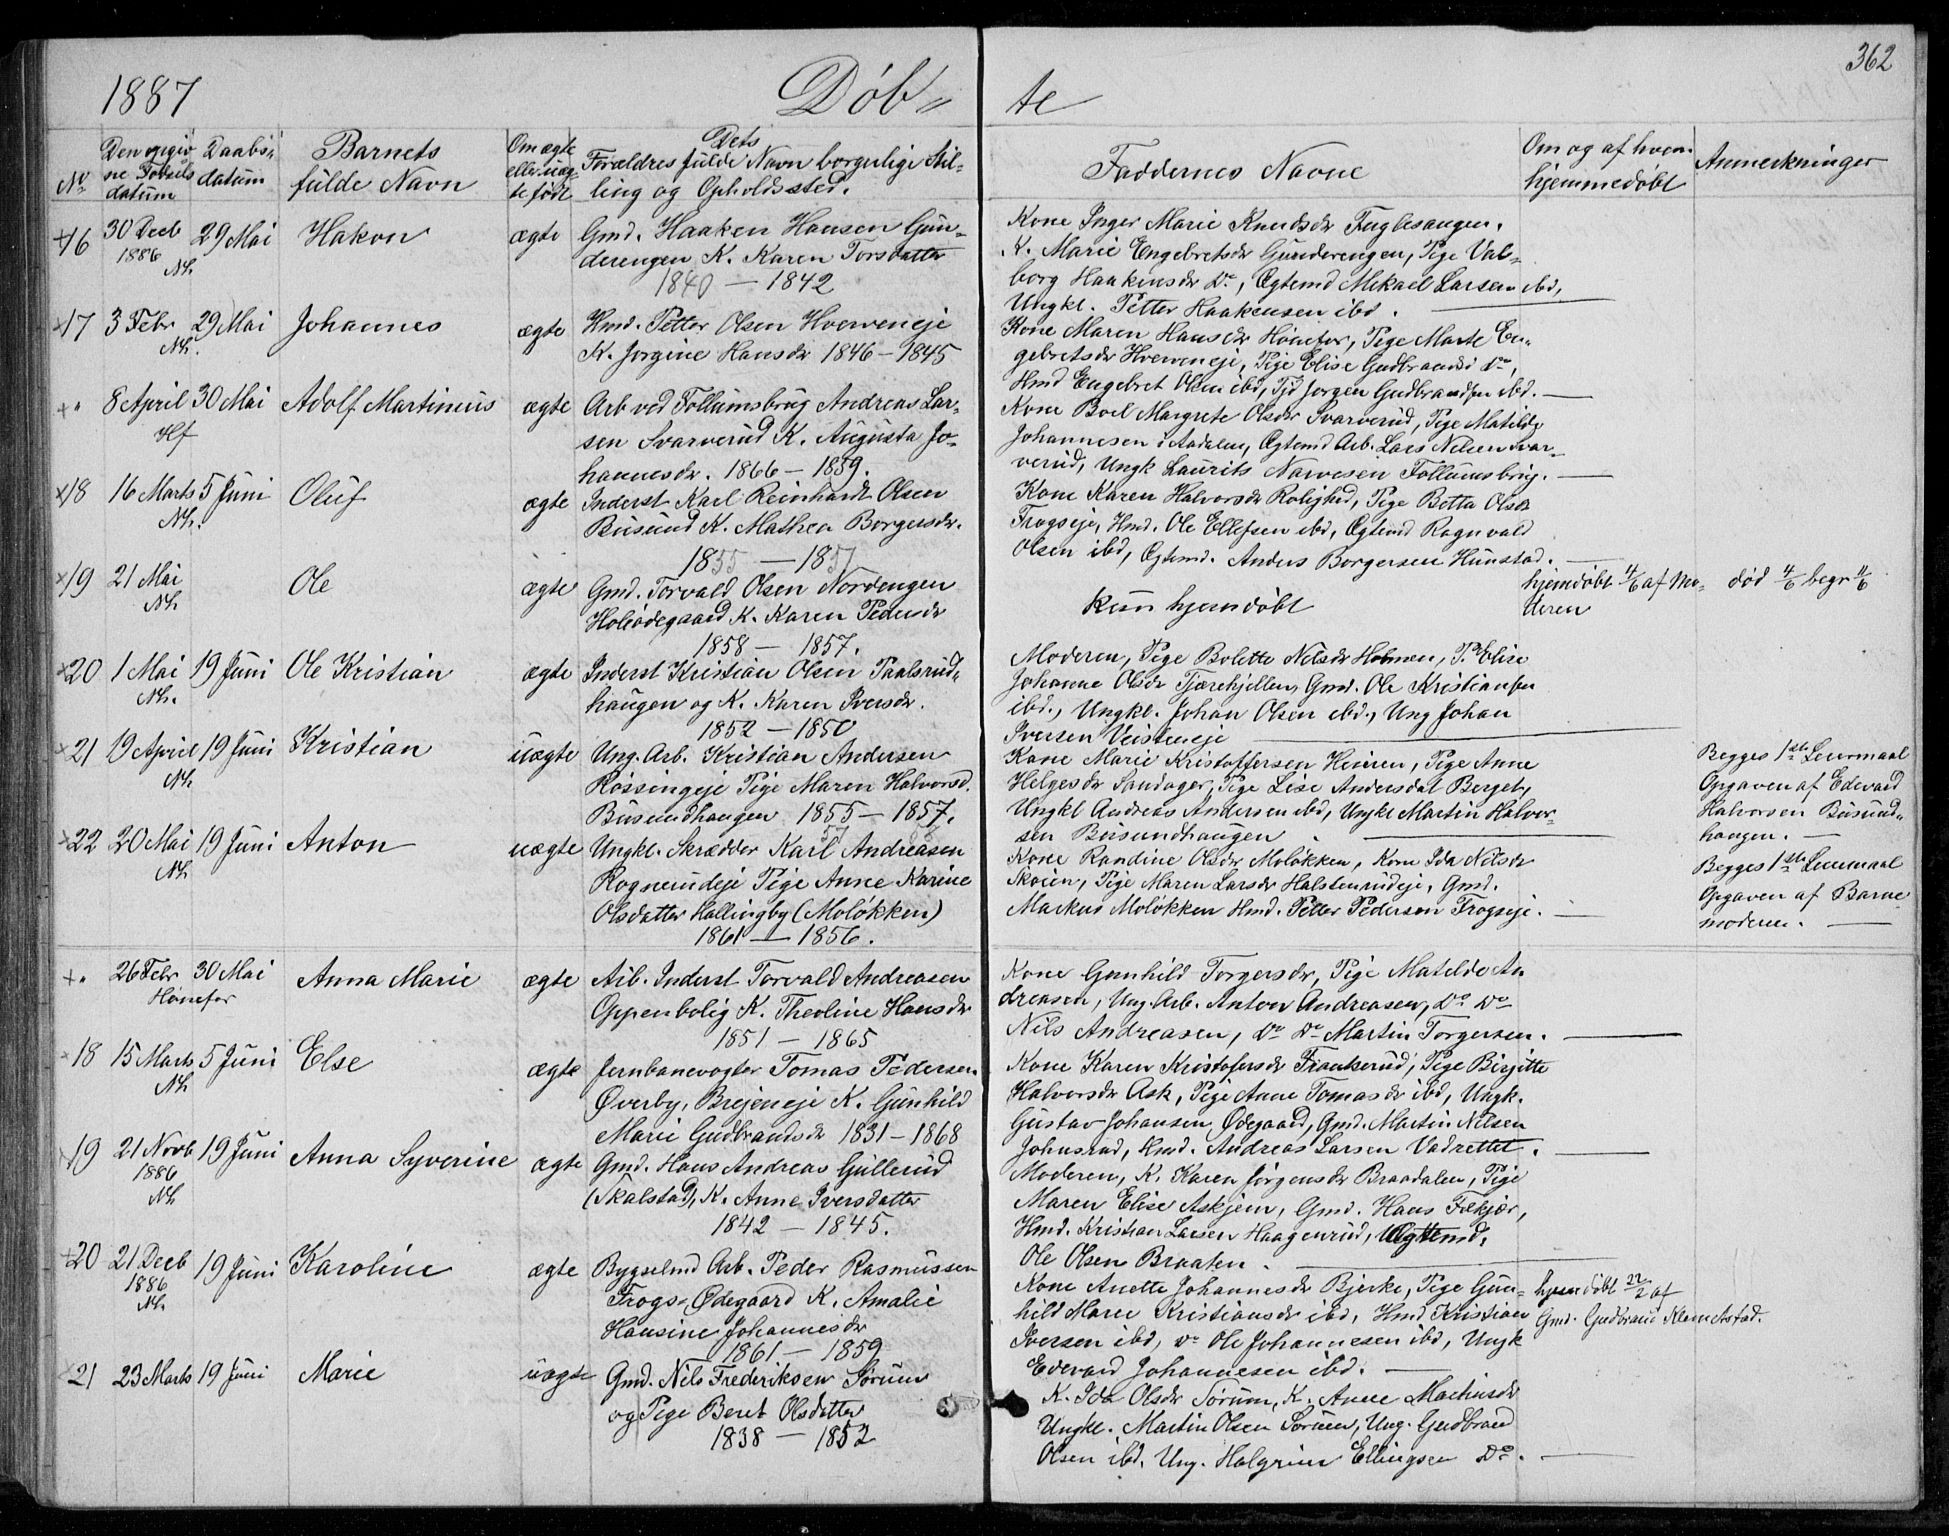 362
1887 Döb- te
No
Den opgiv
ne Fødsels
datum
Daabs-
datum
Barnets
fulde Navn
Om ægte
eller uæg-
te født
Dets
Forældres fulde Navn borgerlige Stil-
ling og Opholdssted.
Faddernes Navne
Om og af hvem
hjemmedøbt
Anmerkninger
16 30 Decb 29 Mai Hakon ægte Gmd. Haaken Hansen Gun-
1886 derengen K. Karen Torsdatter
Nh. 1840 — 1842
Kone Inger Marie Knudsdr Fuglesangen.
K. Marie Engebretsdr Gunderengen, Pige Val-
borg Haakensdr Do, Ægtemd Mikael Larsen ibd,
Ungkl. Petter Haakensen ibd.
17 3 Febr 29 Mai Johannes ægte Hmd. Petter Olsen Hverveneje
Nh. K. Jorgine Hansdr 1846 – 1845
Kone Maren Hansdr Hønefos, Pige Marte En-
gebretsdr Hverveneje, Pige Elise Gudbrandsd Do,
Hmd Engebret Olsen ibd, Jorgen Gudbrandsen ibd.
" 8 April 30 Mai Adolf Martinius ægte Arb ved Follumsbrug Andreas Lar-
Hf sen Svarverud K. Augusta Jo-
hannesdr. 1866 – 1859.
Kone Boel Margrete Olsdr Svarverud, Pige Matilde
Johannesen i Aadalen, Ægtemd Arb. Lars Nilsen Svar-
verud, Ungk Laurits Narvesen Follumsbrug.
18 16 Marts 5 Juni Oluf ægte Inderst Karl Reinhardt Olsen
Nh. Busund K. Mathea Borgersdr.
1855 — 1857
Kone Karen Halvorsdr Rolighed, Pige Betta Olsdr
Frogseje, Hmd. Ole Ellefsen ibd, Ægtemd Ragnvald
Olsen ibd, Ægtemd. Anders Borgersen Hunstad.
19 21 Mai Ole ægte Gmd. Torvald Olsen Nordengen
Nh Holeødegaard K. Karen Pedersdr
1858 — 1857.
Kun hjemdøbt
hjemdøbt 4/6 af Mo-
deren
død 4/6 begr 11/6
20 1 Mai 19 Juni Ole Kristian ægte Inderst Kristian Olsen Paalsrud-
Nh. haugen og K. Karen Iversdr.
1852 – 1850
Moderen, Pige Bolette Nilsdr Holmen, P. Elise
Johanne Olsdr Tjærehjellen, Gmd. Ole Kristiansen
ibd., Ungkl. Johan Olsen ibd., Ung Johan
Iversen Veistreneje
21 19 April 19 Juni Kristian uægte Ung. Arb. Kristian Andersen
Nh Røssingeje Pige Maren Halvorsd.
Busundhaugen 1855 – 1857.
Kone Marie Kristoffersen Heiren, Pige Anne
Helgesdr Sandager, Pige Lise Andersdat Berget,
Ungkl Andreas Andersen ibd, Ungkl Martin Halvor-
sen Busundhaugen
Begges 1ste Leiermaal
Opgaven af Edevard
Halvorsen Busund-
haugen.
22 20 Mai 19 Juni Anton uægte Ungkl. Skrædder Karl Andreasen
Nh Rognerudeje Pige Anne Karine
Olsdatter Hallingby (Moløkken)
1861 — 1856.
Kone Randine Olsdr Moløkken, Kone Ida Nilsdr
Skøien, Pige Maren Larsdr Halstenrudeje, Gmd.
Markus Moløkken Hmd. Petter Pederson Frogseje.
Begges 1ste Leiermaal
Opgaven af Barne
moderen.
" 26 Febr 30 Mai Anna Marie ægte Arb. Inderst Torvald Andreasen
Hønefos Oppenbolig K. Theoline Hansdr
1851 – 1865
Kone Gunhild Torgersdr, Pige Matelde An
dreasen, Ung. Arb. Anton Andreasen, Do Do
Nils Andreasen, Do Do Martin Torgersen.
18 15 Marts 5 Juni Else ægte Jernbanevogter Tomas Pedersen
Nh Øverby, Brejeneje K. Gunhild
Marie Gudbrandsdr 1831 – 1868
Kone Karen Kristofersdr Frankerud, Pige Birgitte
Halvorsdr Ask, Pige Anne Tomasdr ibd, Ungk.
Gustav Johansen Ødegaard, Gmd. Martin Nilsen
Johnsrud, Hmd. Andreas Larsen Vadrettet.
19 21 Novb 19 Juni Anna Syverine ægte Gmd. Hans Andreas Gullerud
1886 (Skalstad), K. Anne Iversdatter
Nh 1842 – 1845.
Moderen, K. Karen Jørgensdr Braadalen, Pige
Maren Elise Askjem, Gmd. Hans Fekjær,
Hmd. Kristian Larsen Haagenrud, Ægtemd.
Ole Olsen Braaten.
20 21 Decb 19 Juni Karoline ægte Bygselmd Arb. Peder Rasmussen
1886 Frogs-Ødegaard K. Amalie
Nh. Hansine Johannesdr
1861 – 1859
Kone Anette Johannesdr Bjerke, Pige Gun-
hild Marie Kristiansdr ibd, Hmd Kristian
Iversen ibd, Do Ole Johannesen ibd, Ungk
Edevard Johannesen ibd.
hjemdøbt 22/2 af
Gmd. Gudbrand Klemetstad.
21 23 Marts 19 Juni Marie uægte Gmd. Nils Frederiksen Sørum
og Pige Beret Olsdatter
1838 — 1852
K. Ida Olsdr Sørum, K. Anne Martinsdr
Ungkl. Martin Olsen Sørum, Ung. Gudbrand
Olsen ibd. Ung. Halgrim Ellingsen Do.